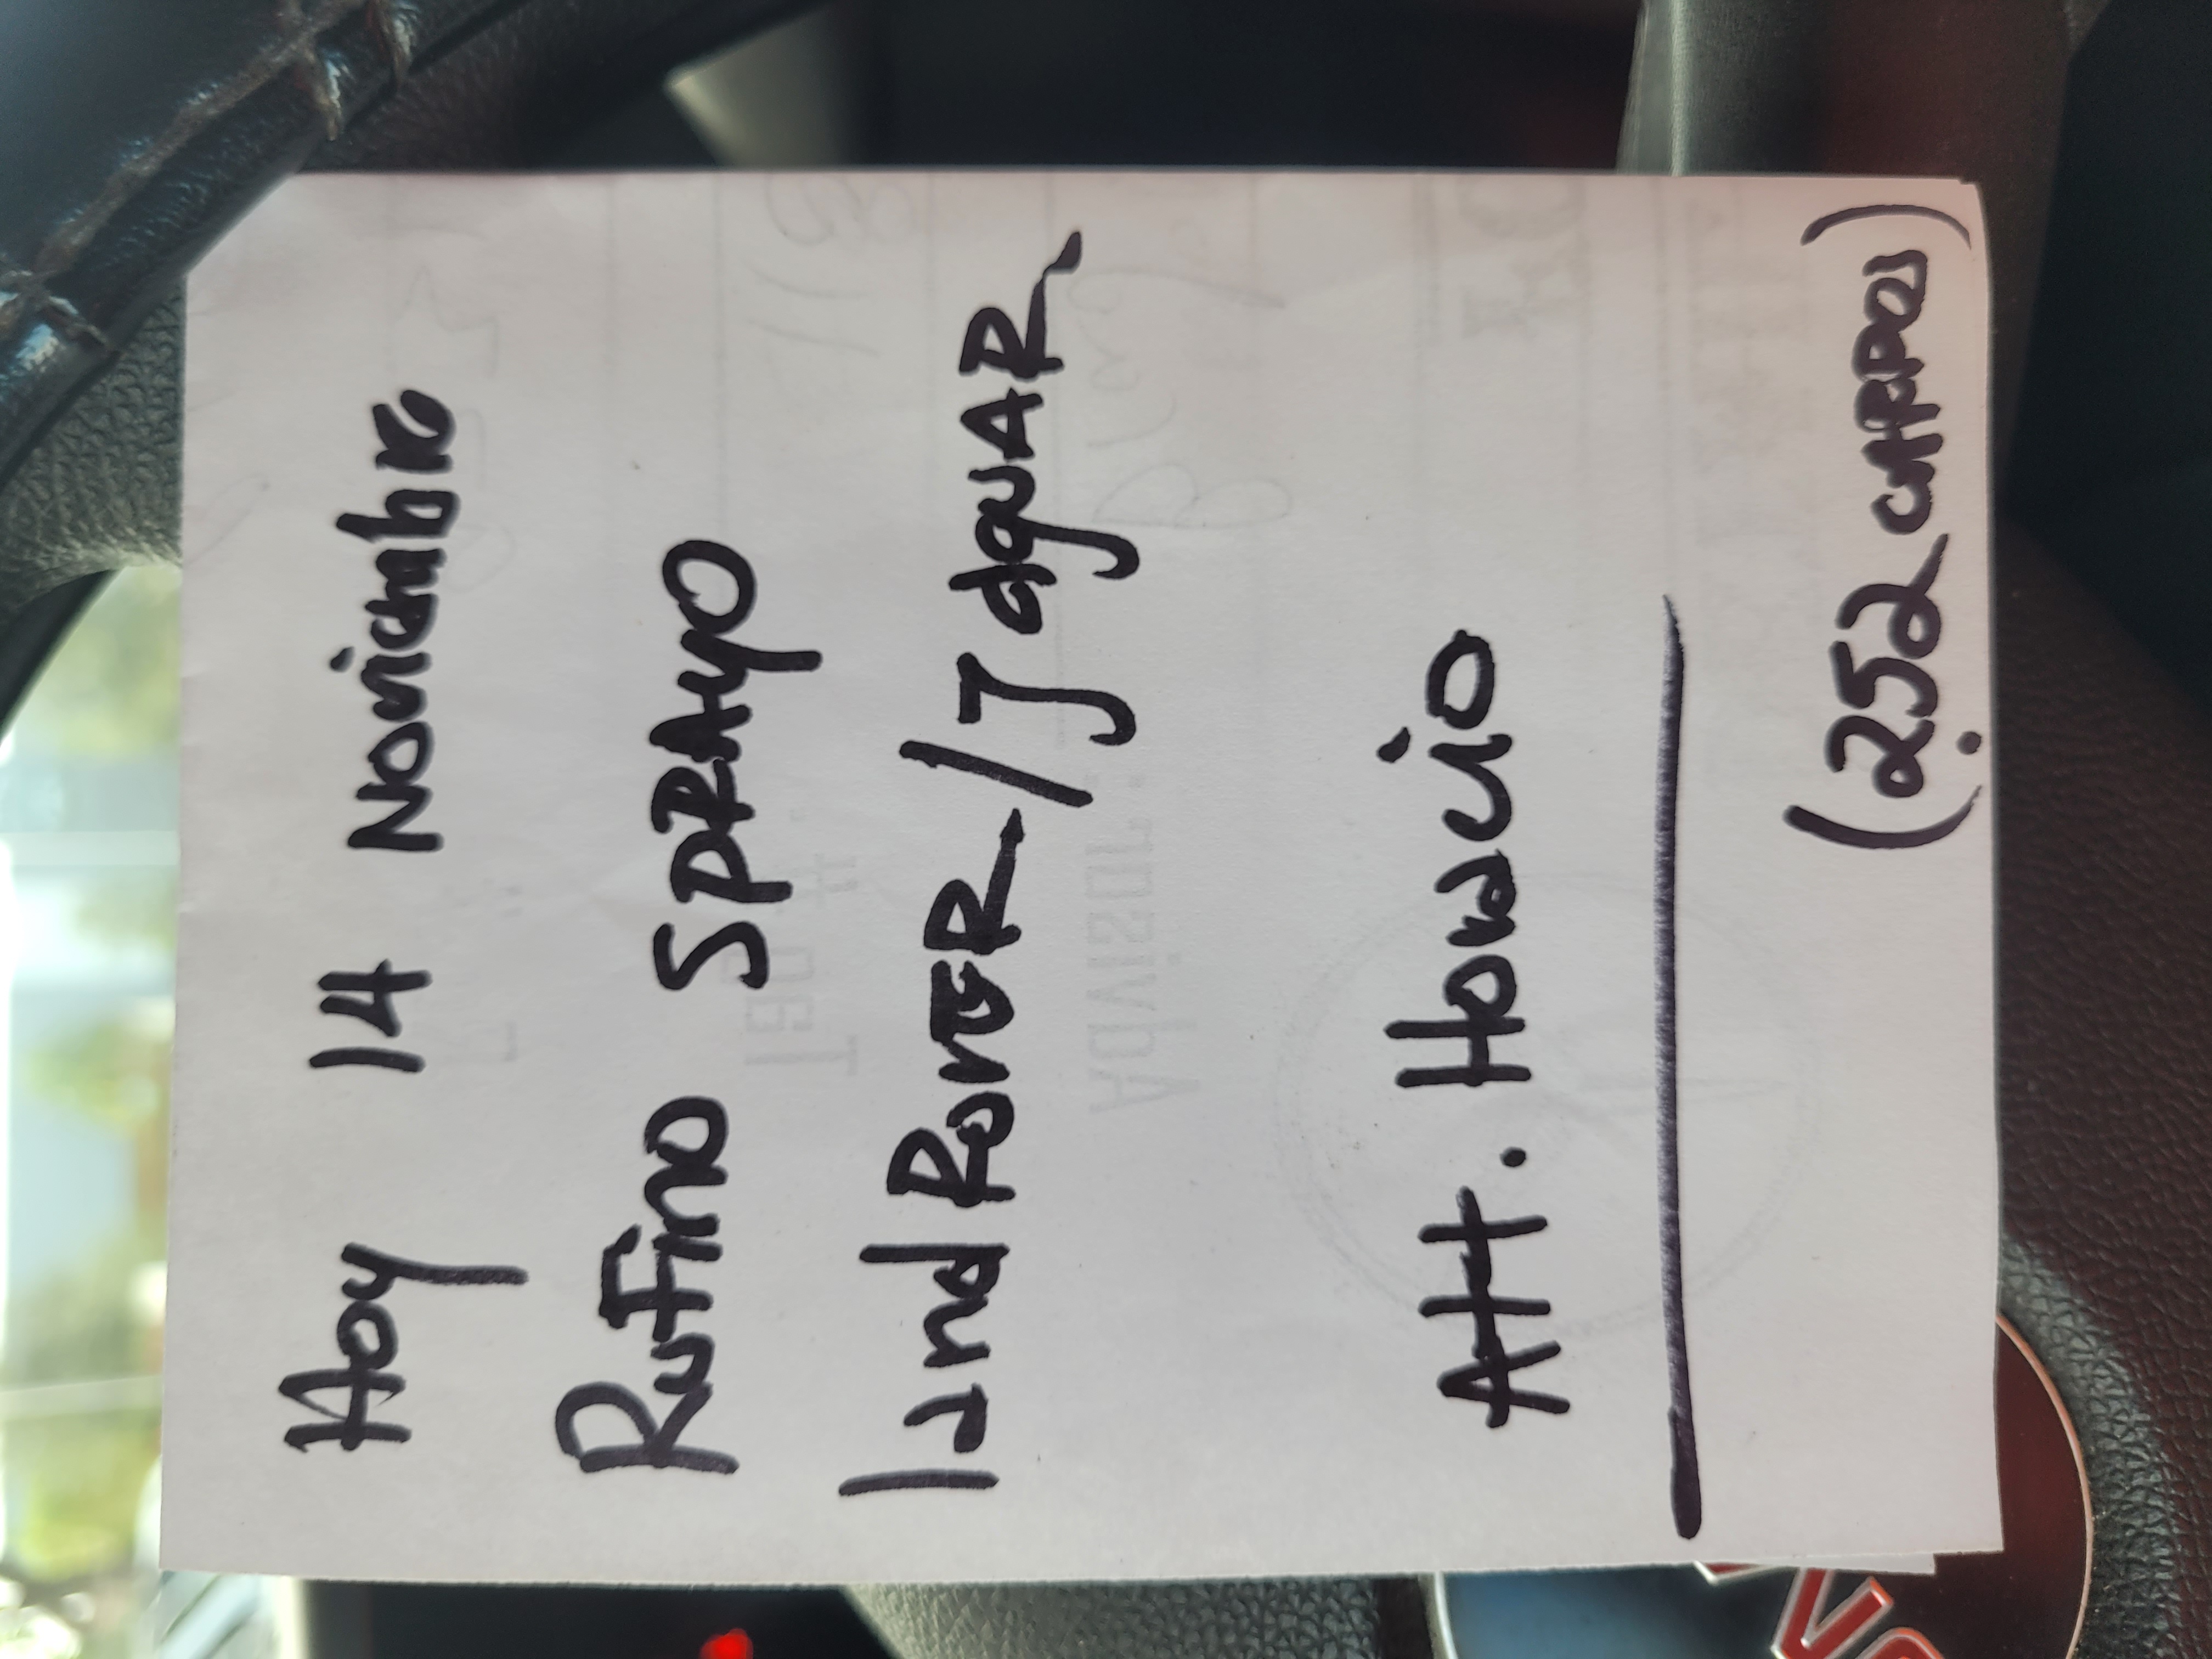 Hoy 14 Noviembre
Rufino SPRAyO
land RoveR / JaguAR
Att. Horacio
(252 CARPOS)
Advisor:
Tag #